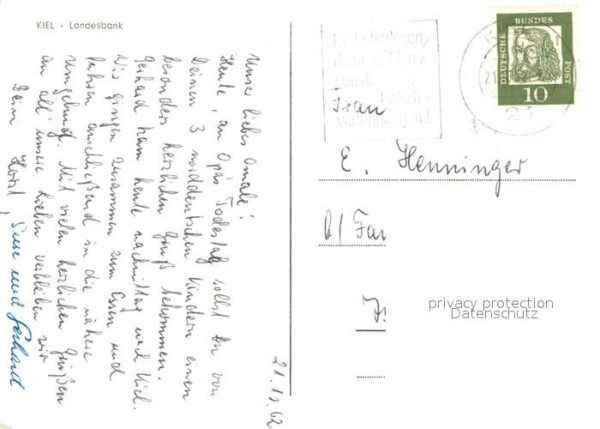 KIEL - Landesbank
Unser liebes Omale!
Heute, an Opas Todestag sollst Du von
Deinen 3 norddeutschen Kindern einen
besonders herzlichen Gruß bekommen.
Gerhard kam heute nachmittag nach Kiel.
Wir gingen zusammen zum Essen und
fuhren anschließend in die nähere
Umgebung. Mit vielen herzlichen Grüßen
an all' unsere Lieben verbleiben wir
Deine Horst,
Suse und Gerhard
21.10.62
Erst überlegen,
dann wählen
DEUTSCHE BUNDES POST
10
Frau
E. Henninger
privacy protection
Datenschutz